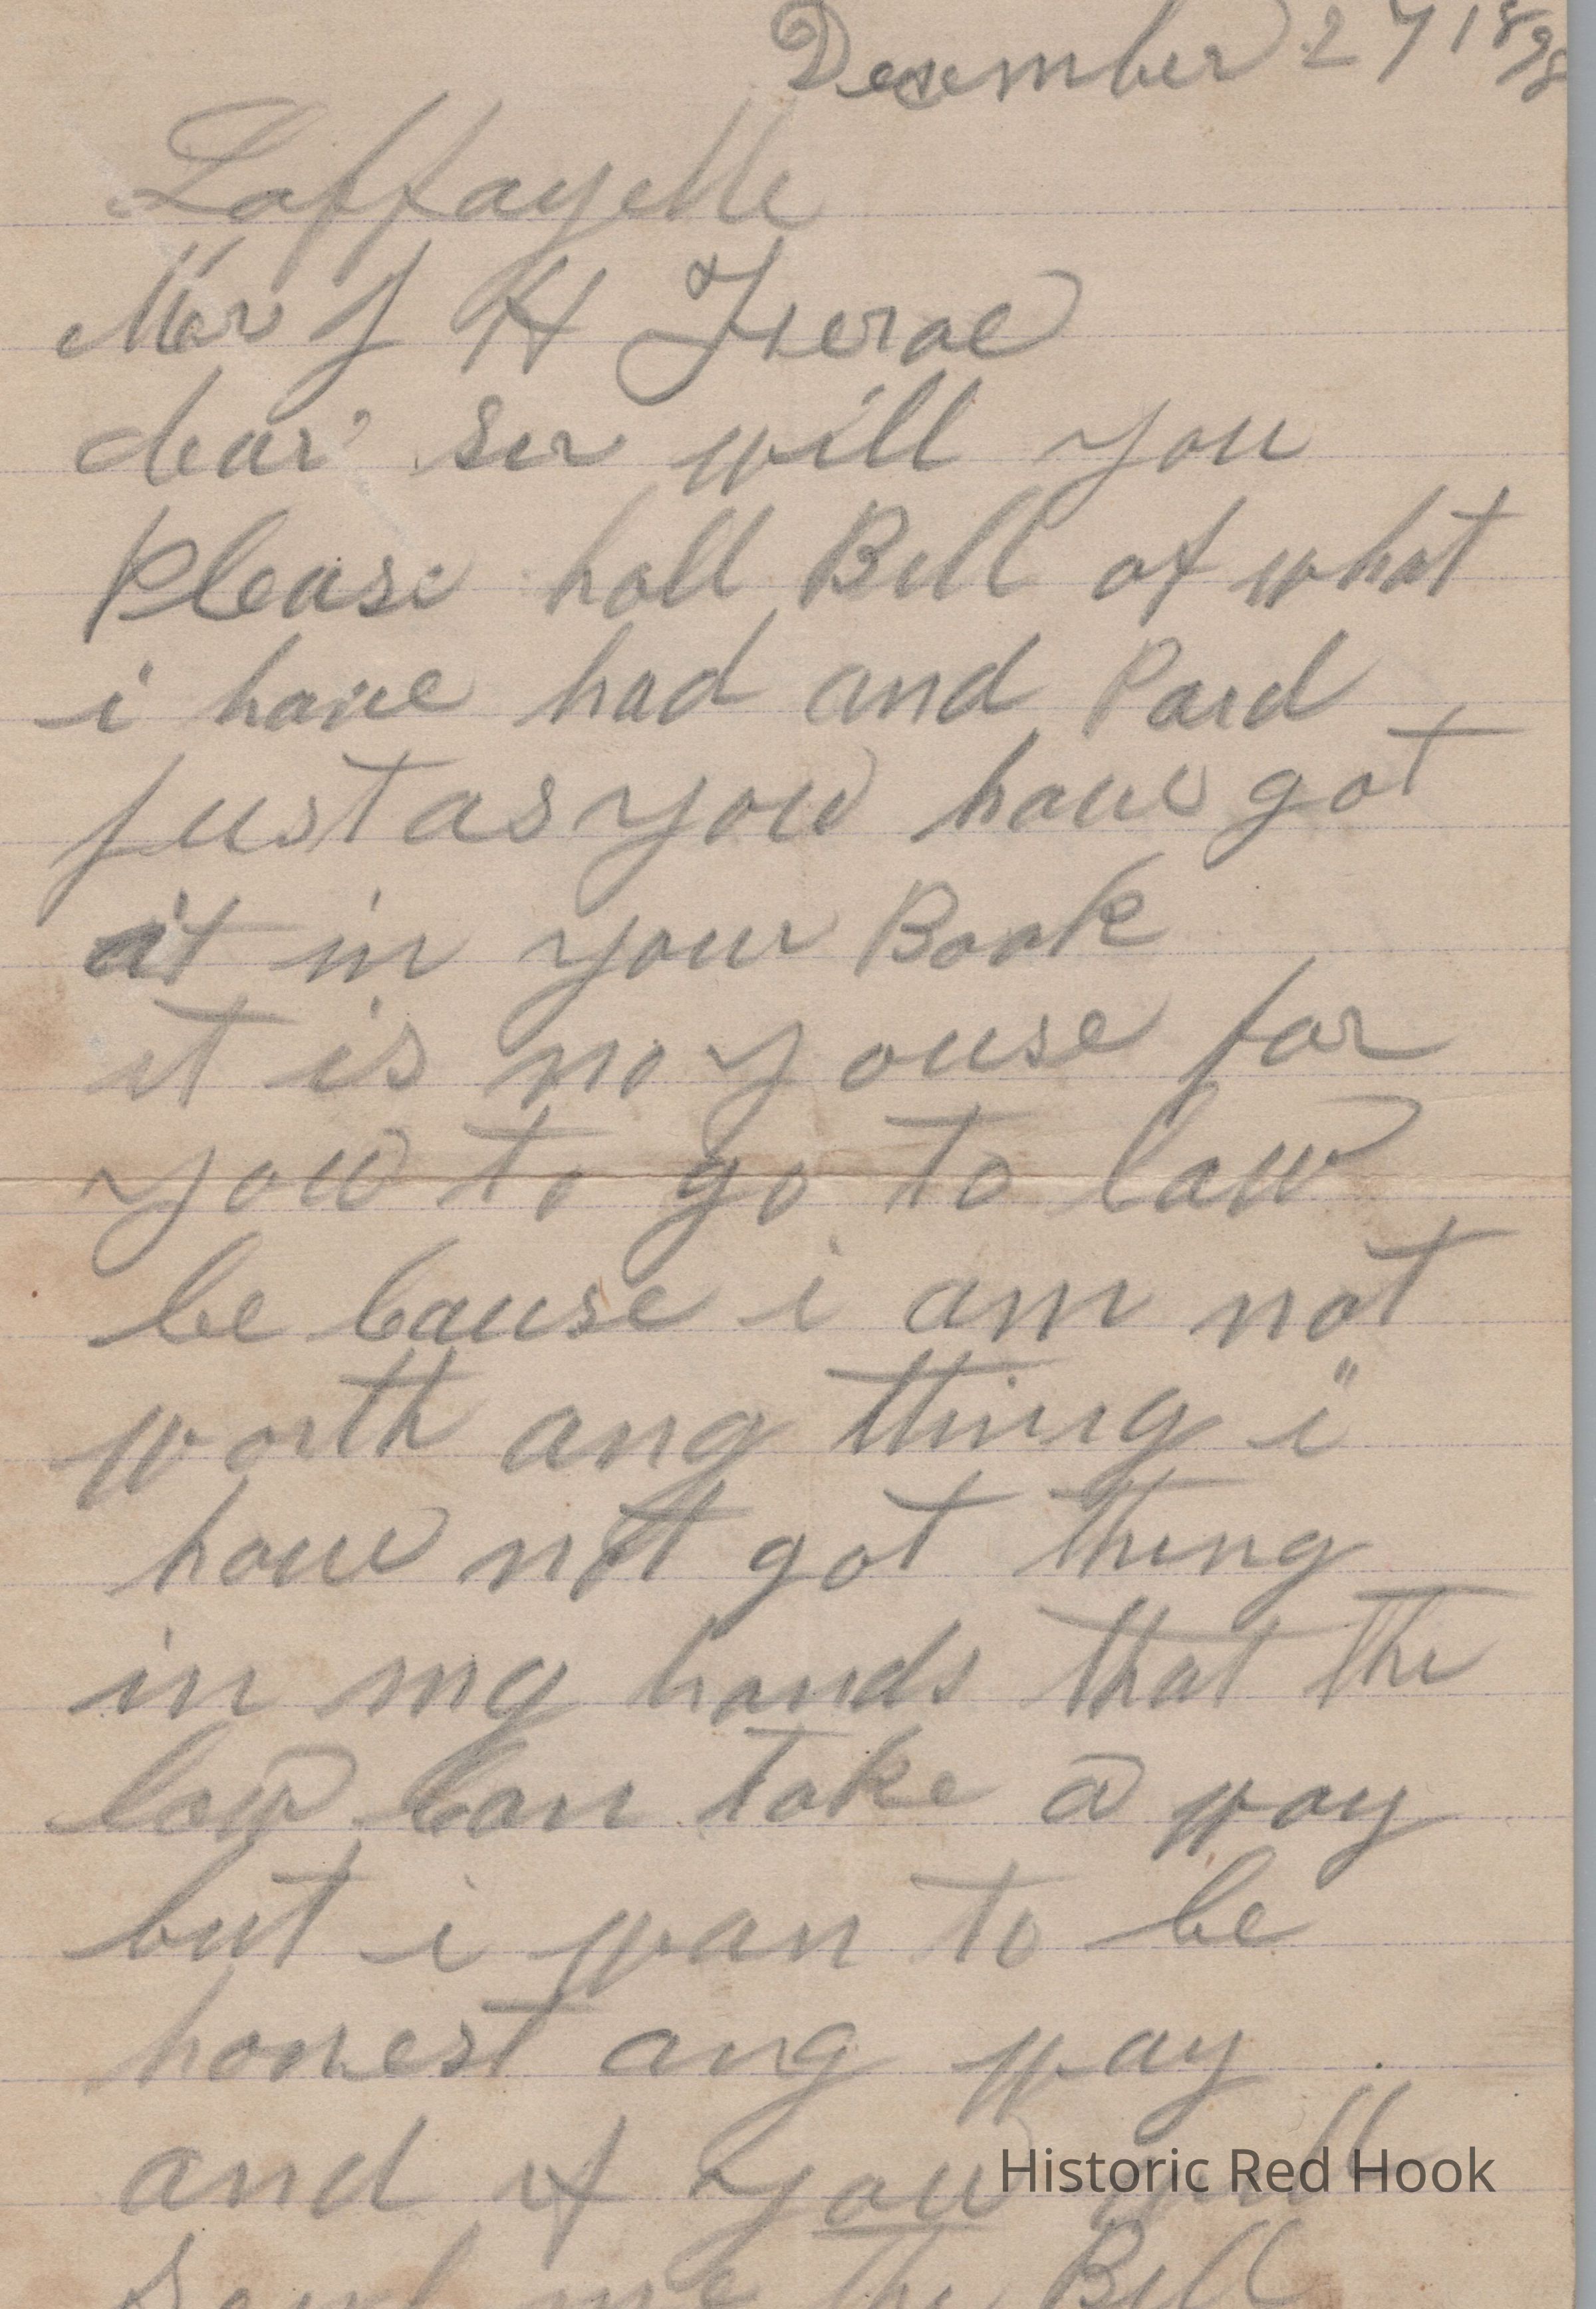 Desember 27 1898
Laffayette
Mr J H Fieroe
dear sir will you
Please hall Bill of what
i have had and Paid
just as you have got
it in your Book
it is no youse for
you to go to law
be cause i am not
worth any thing i
have not got thing
in my hands that the
law can take a way
but i wan to be
honest any way
and if you will
Send me the Bill
Historic Red Hook